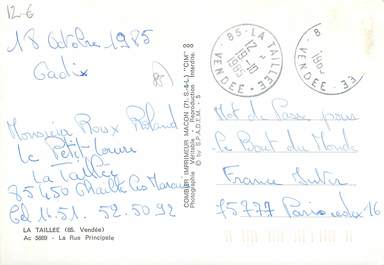 12-6
18 Octobre 1985
Cadix
85
Monsieur Roux Roland
Le Petit
La Taillée
85450 Chaillé les Marais
Tel 16.51. 52.50.92
LA TAILLEE (85. Vendée)
Ac 5669 - La Rue Principale
COMBIER IMPRIMEUR MACON (71. S.-&-L.) "CIM"
Photographie Véritable - Reproduction Interdite.
© by S.P.A.D.E.M. - 5
85-LA TAILLEE
12 H
-10
1985
VENDEE
Mot de Passe pour
le Bout du Monde
France Inter
75777 Paris cedex 16